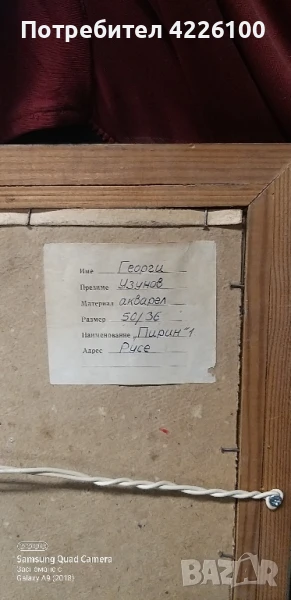 Потребител 4226100
Име Георги
Презиме Узунов
Материал акварел
Размер 50/36
Наименование „Пирин“1
Адрес Русе
Samsung Quad Camera
Заснемане с
Galaxy A9 (2018)
BAZAR